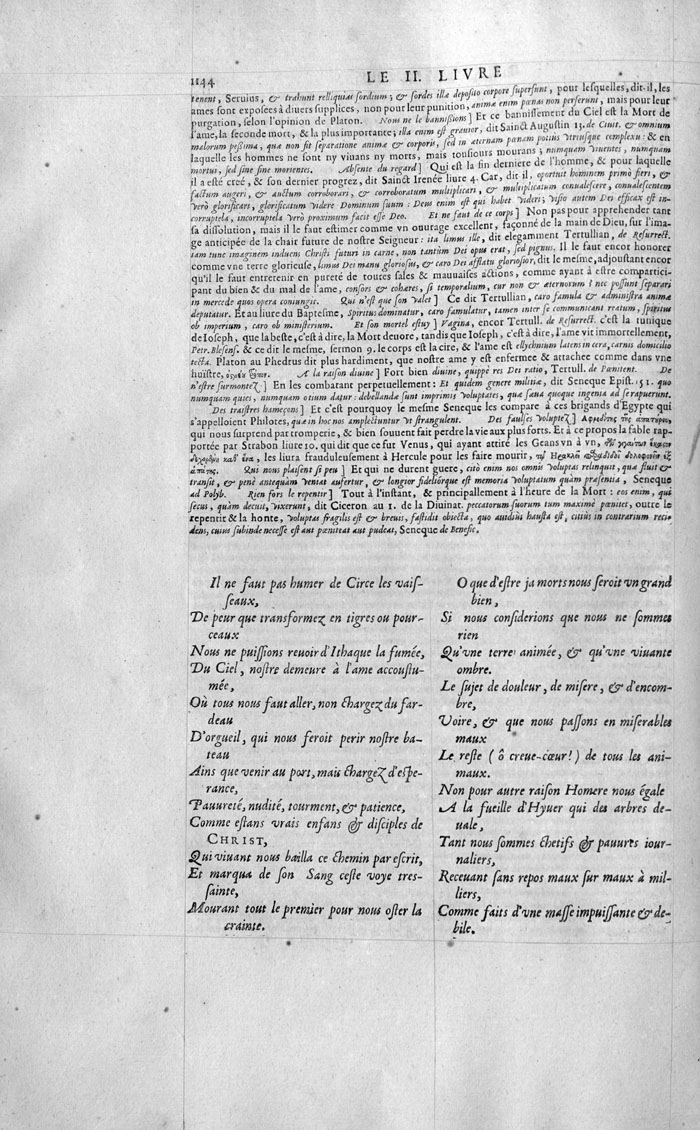 1144
LE II. LIVRE
tenent, Seruius, & trahunt relliquias sordium; & sordes illæ deposito corpore supersunt, pour lesquelles, dit-il, les
ames sont exposées à diuers supplices, non pour leur punition, animæ enim pœnas non perferunt, mais pour leur
purgation, selon l'opinion de Platon. Nous me le bannissons] Et ce bannissement du Ciel est la Mort de
l'ame, la seconde mort, & la plus importante; illa enim est grauior, dit Sainct Augustin 13. de Ciuit. & omnium
malorum peßima, quæ non fit separatione animæ & corporis, sed in æternam pœnam potius vtriusque complexu: & en
laquelle les hommes ne sont ny viuans ny morts, mais tousiours mourans; numquam viuentes, numquam
mortui, sed sine fine morientes. Absente du regard] Qui est la fin derniere de l'homme, & pour laquelle
il a esté creé, & son dernier progrez, dit Sainct Irenée liure 4. Car, dit il, oportuit hominem primò fieri, &
factum augeri, & auctum corroborari, & corroboratum multiplicari, & multiplicatum conualescere, conualescentem
verò glorificari, glorificatum videre Dominum suum: Deus enim est qui habet videri; visio autem Dei efficax est in-
corruptela, incorruptela verò proximum facit esse Deo. Et ne faut de ce corps] Non pas pour apprehender tant
sa dissolution, mais il le faut estimer comme vn ouurage excellent, façonné de la main de Dieu, sur l'ima-
ge anticipée de la chair future de nostre Seigneur: ita limus ille, dit elegamment Tertullian, de Resurrect.
iam tunc imaginem induens Christi futuri in carne, non tantùm Dei opus erat, sed pignus. Il le faut encor honorer
comme vne terre glorieuse, limus Dei manu gloriosus, & caro Dei afflatu gloriosior, dit le mesme, adjoustant encor
qu'il le faut entretenir en pureté de toutes sales & mauuaises actions, comme ayant à estre compartici-
pant du bien & du mal de l'ame, consors & cohæres, si temporalium, cur non & æternorum? nec possunt separari
in mercede quos opera coniungit. Qui n'est que son valet] Ce dit Tertullian, caro famula & administra animæ
deputatur. Et au liure du Baptesme, Spiritus dominatur, caro famulatur, tamen inter se communicant reatum, spiritus
ob imperium, caro ob ministerium. Et son mortel estuy] Vagina, encor Tertull. de Resurrect. c'est la tunique
de Ioseph, que la beste, c'est à dire, la Mort deuore, tandis que Ioseph, c'est à dire, l'ame vit immortellement,
Petr. Blesens. & ce dit le mesme, sermon 9. le corps est la cire, & l'ame est ellychnium latens in cera, carnis domicilio
tecta. Platon au Phedrus dit plus hardiment, que nostre ame y est enfermee & attachee comme dans vne
huistre, A la raison diuine] Fort bien diuine, quippè res Dei ratio, Tertull. de Pœnitent. De
n'estre surmontez] En les combatant perpetuellement: Et quidem genere militiæ, dit Seneque Epist. 51. quo
numquam quies, numquam otium datur: debellandæ sunt imprimis voluptates, quæ sæua quoque ingenia ad se rapuerunt.
Des traistres hameçons] Et c'est pourquoy le mesme Seneque les compare à ces brigands d'Egypte qui
s'appelloient Philotes, quæ in hoc nos amplectuntur vt strangulent. Des faulses voluptez]
qui nous surprend par tromperie, & bien souuent fait perdre la vie aux plus forts. Et à ce propos la fable rap-
portée par Strabon liure 10. qui dit que ce fut Venus, qui ayant attiré les Geans vn à vn,
les liura frauduleusement à Hercule pour les faire mourir,
Qui nous plaisent si peu] Et qui ne durent guere, citò enim nos omnis voluptas relinquit, quæ fluit &
transit, & penè antequam veniat aufertur, & longior fideliórque est memoria voluptatum quàm præsentia, Seneque
ad Polyb. Rien fors le repentir] Tout à l'instant, & principalement à l'heure de la Mort: eos enim, qui
secus, quàm decuit, vixerunt, dit Ciceron au 1. de la Diuinat. peccatorum suorum tum maximè pœnitet, outre le
repentir & la honte, voluptas fragilis est & breuis, fastidio obiecta, quo audiùs hausta est, citiùs in contrarium reci-
dens, cuius subinde necesse est aut pœniteat aut pudeat, Seneque de Benefic.
Il ne faut pas humer de Circe les vais-
seaux,
De peur que transformez en tigres ou pour-
ceaux
Nous ne puissions reuoir d'Ithaque la fumée,
Du Ciel, nostre demeure à l'ame accoustu-
mée,
Où tous nous faut aller, non chargez du far-
deau
D'orgueil, qui nous feroit perir nostre ba-
teau
Ains que venir au port, mais chargez d'espe-
rance,
Pauureté, nudité, tourment, & patience,
Comme estans vrais enfans & disciples de
CHRIST,
Qui viuant nous bailla ce chemin par escrit,
Et marqua de son Sang ceste voye tres-
sainte,
Mourant tout le premier pour nous oster la
crainte.
O que d'estre ja morts nous seroit vn grand
bien,
Si nous considerions que nous ne sommes
rien
Qu'vne terre animée, & qu'vne viuante
ombre.
Le sujet de douleur, de misere, & d'encom-
bre,
Voire, & que nous passons en miserables
maux
Le reste (ô creue-cœur!) de tous les ani-
maux.
Non pour autre raison Homere nous égale
A la fueille d'Hyuer qui des arbres de-
uale,
Tant nous sommes chetifs & pauures iour-
naliers,
Receuant sans repos maux sur maux à mil-
liers,
Comme faits d'vne masse impuissante & de-
bile.